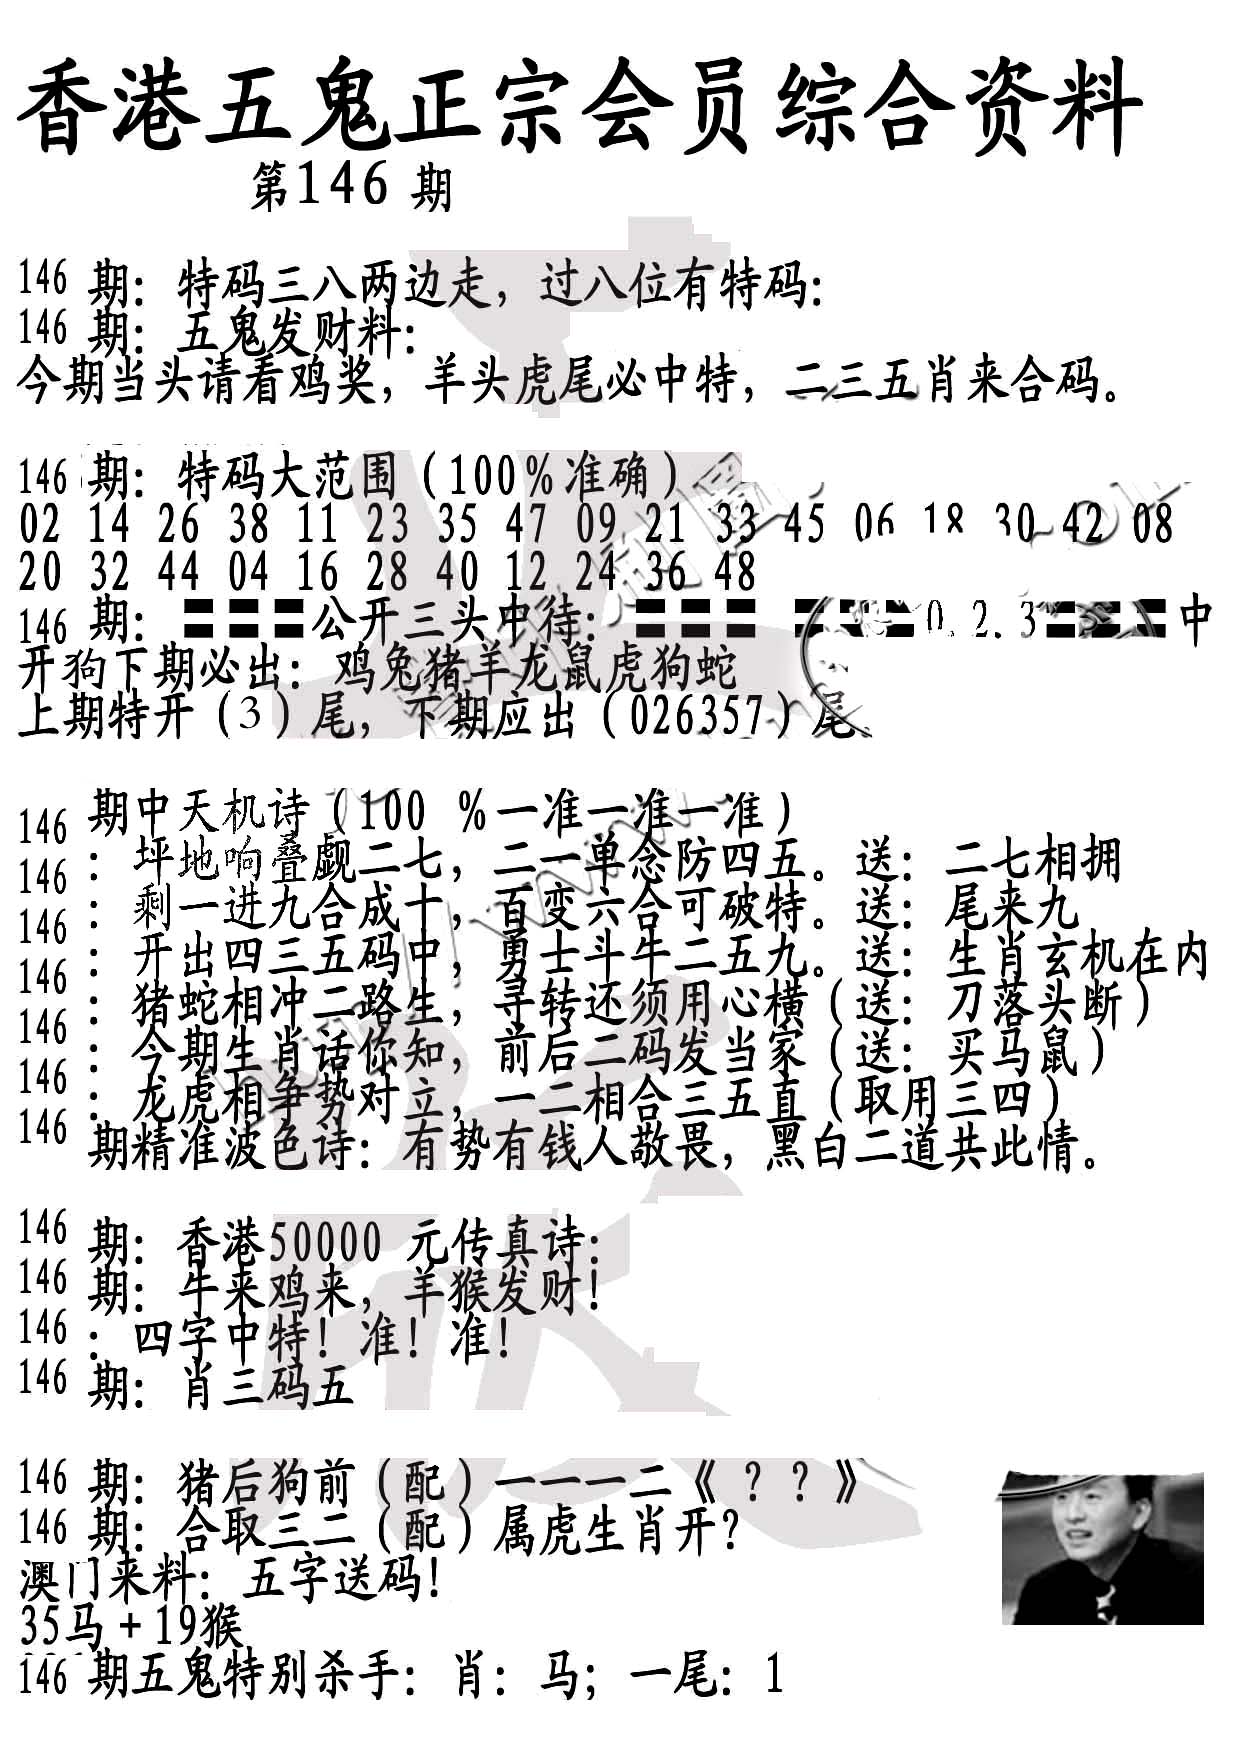 香港五鬼正宗会员综合资料
第146 期
146 期：特码三八两边走，过八位有特码：
146 期：五鬼发财料：
今期当头请看鸡奖，羊头虎尾必中特，二三五肖来合码。
146 期：特码大范围（100%准确）
02 14 26 38 11 23 35 47 09 21 33 45 06 18 30 42 08
20 32 44 04 16 28 40 12 24 36 48
146 期：〓〓〓公开三头中待：〓〓〓 〓〓〓0.2.3〓〓〓中
开狗下期必出：鸡兔猪羊龙鼠虎狗蛇
上期特开（3）尾，下期应出（026357）尾
146 期中天机诗（100 %一准一准一准）
146 ：坪地响叠觑二七，二一单念防四五。送：二七相拥
146 ：剩一进九合成十，百变六合可破特。送：尾来九
146 ：开出四三五码中，勇士斗牛二五九。送：生肖玄机在内
146 ：猪蛇相冲二路生，寻转还须用心横（送：刀落头断）
146 ：今期生肖话你知，前后二码发当家（送：买马鼠）
146 ：龙虎相争势对立，一二相合三五直（取用三四）
146 期精准波色诗：有势有钱人敬畏，黑白二道共此情。
146 期：香港50000 元传真诗：
146 期：牛来鸡来，羊猴发财！
146 ：四字中特！准！准！
146 期：肖三码五
146 期：猪后狗前（配）一一一二《？？》
146 期：合取三二（配）属虎生肖开？
澳门来料：五字送码！
35马+19猴
146 期五鬼特别杀手：肖：马；一尾：1